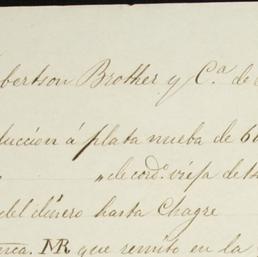 bertson Brother y C.ª de
duccion á plata nueba de 60
" " de cord.ˢ vieja de
del dinero hasta Chagre
arca. MR que remito en la